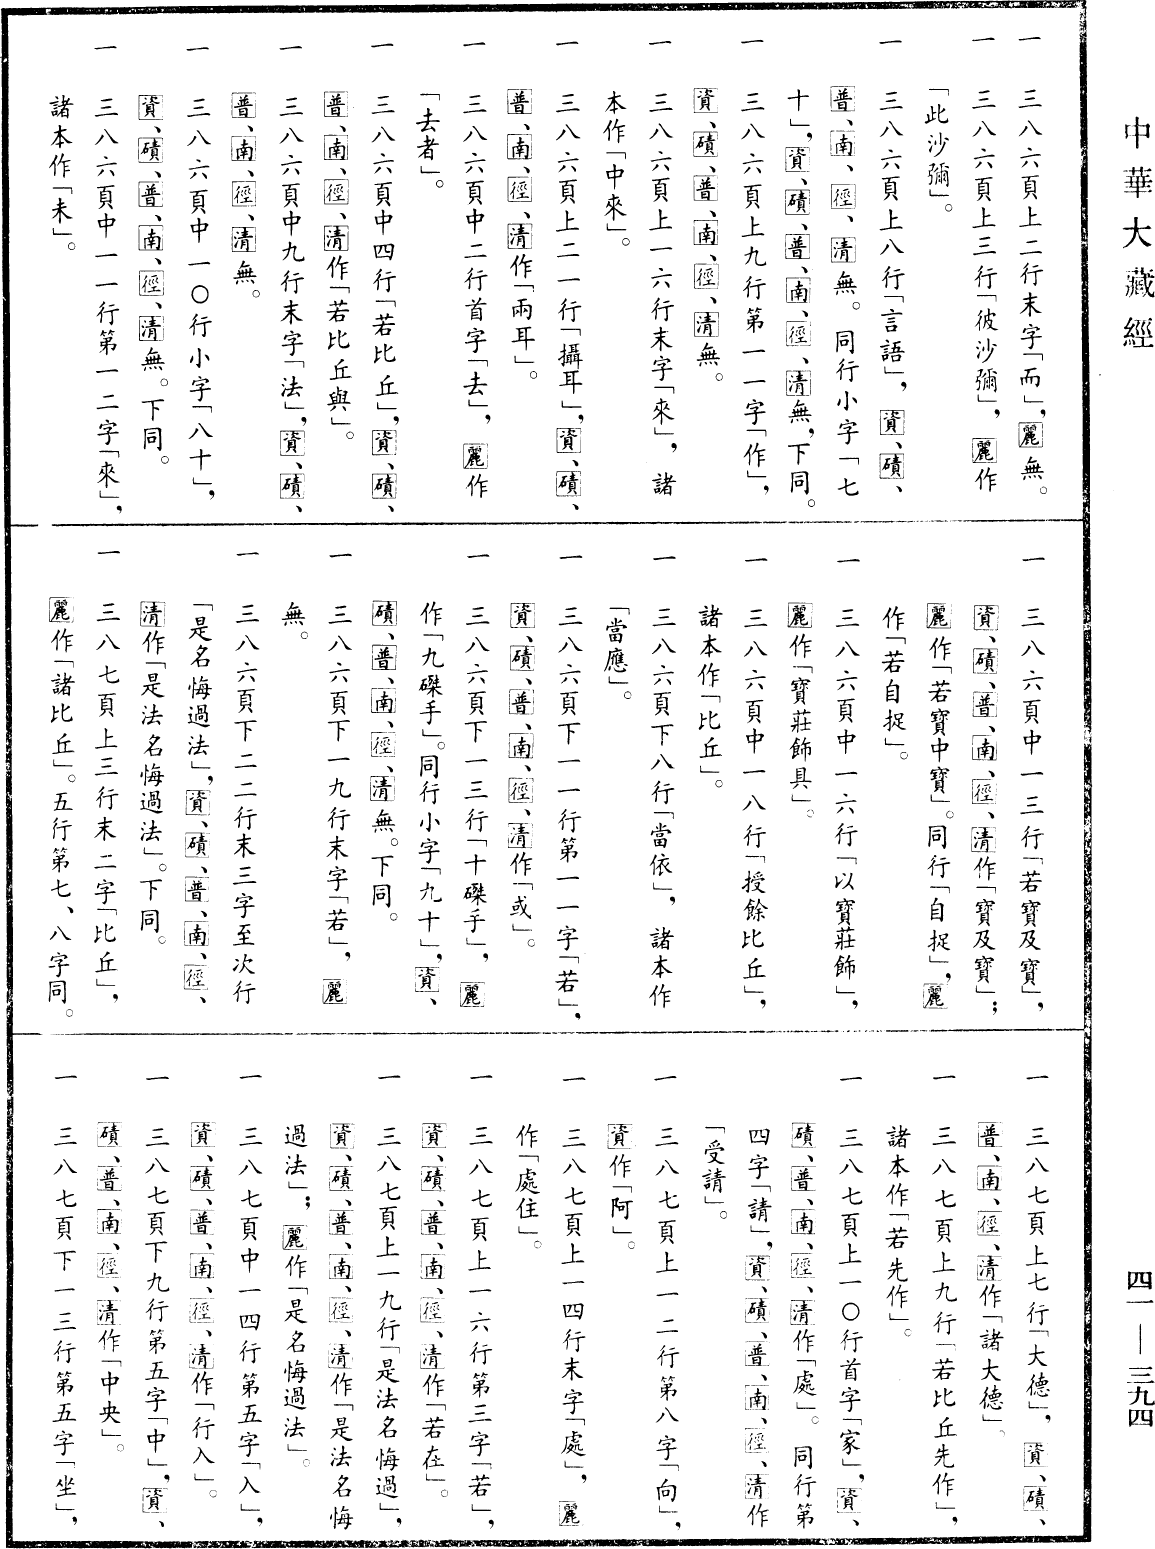 中華大藏經
一　三八六頁上二行末字「而」，麗無。
一　三八六頁上三行「彼沙彌」，麗作
「此沙彌」。
一　三八六頁上八行「言語」，資、磧、
普、南、徑、清無。同行小字「七
十」，資、磧、普、南、徑、清無，下同。
一　三八六頁上九行第一一字「作」，
資、磧、普、南、徑、清無。
一　三八六頁上一六行末字「來」，諸
本作「中來」。
一　三八六頁上二一行「攝耳」，資、磧、
普、南、徑、清作「兩耳」。
一　三八六頁中二行首字「去」，麗作
「去者」。
一　三八六頁中四行「若比丘」，資、磧、
普、南、徑、清作「若比丘與」。
一　三八六頁中九行末字「法」，資、磧、
普、南、徑、清無。
一　三八六頁中一〇行小字「八十」，
資、磧、普、南、徑、清無。下同。
一　三八六頁中一一行第一二字「來」，
諸本作「未」。
一　三八六頁中一三行「若寶及寶」，
資、磧、普、南、徑、清作「寶及寶」；
麗作「若寶中寶」。同行「自捉」，麗
作「若自捉」。
一　三八六頁中一六行「以寶莊飾」，
麗作「寶莊飾具」。
一　三八六頁中一八行「授餘比丘」，
諸本作「比丘」。
一　三八六頁下八行「當依」，諸本作
「當應」。
一　三八六頁下一一行第一一字「若」，
資、磧、普、南、徑、清作「或」。
一　三八六頁下一三行「十磔手」，麗
作「九磔手」。同行小字「九十」，資、
磧、普、南、徑、清無。下同。
一　三八六頁下一九行末字「若」，麗
無。
一　三八六頁下二二行末三字至次行
「是名悔過法」，資、磧、普、南、徑、
清作「是法名悔過法」。下同。
一　三八七頁上三行末二字「比丘」，
麗作「諸比丘」。五行第七、八字同。
一　三八七頁上七行「大德」，資、磧、
普、南、徑、清作「諸大德」。
一　三八七頁上九行「若比丘先作」，
諸本作「若先作」。
一　三八七頁上一〇行首字「家」，資、
磧、普、南、徑、清作「處」。同行第
四字「請」，資、磧、普、南、徑、清作
「受請」。
一　三八七頁上一二行第八字「向」，
資作「阿」。
一　三八七頁上一四行末字「處」，麗
作「處住」。
一　三八七頁上一六行第三字「若」，
資、磧、普、南、徑、清作「若在」。
一　三八七頁上一九行「是法名悔過」，
資、磧、普、南、徑、清作「是法名悔
過法」；麗作「是名悔過法」。
一　三八七頁中一四行第五字「入」，
資、磧、普、南、徑、清作「行入」。
一　三八七頁下九行第五字「中」，資、
磧、普、南、徑、清作「中央」。
一　三八七頁下一三行第五字「坐」，
四一—三九四